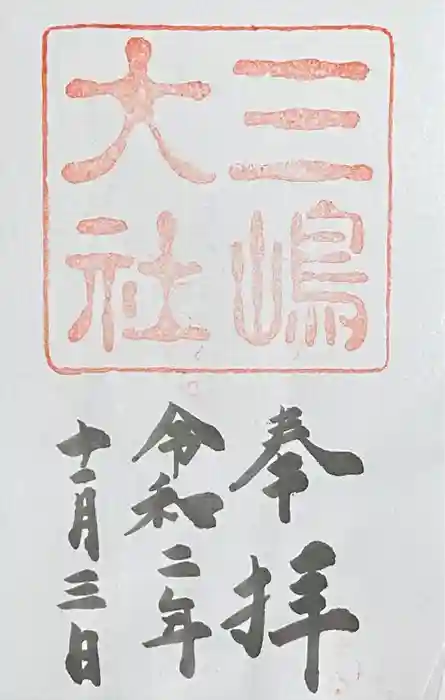 三嶋
大社
奉拝
令和二年
十一月三日